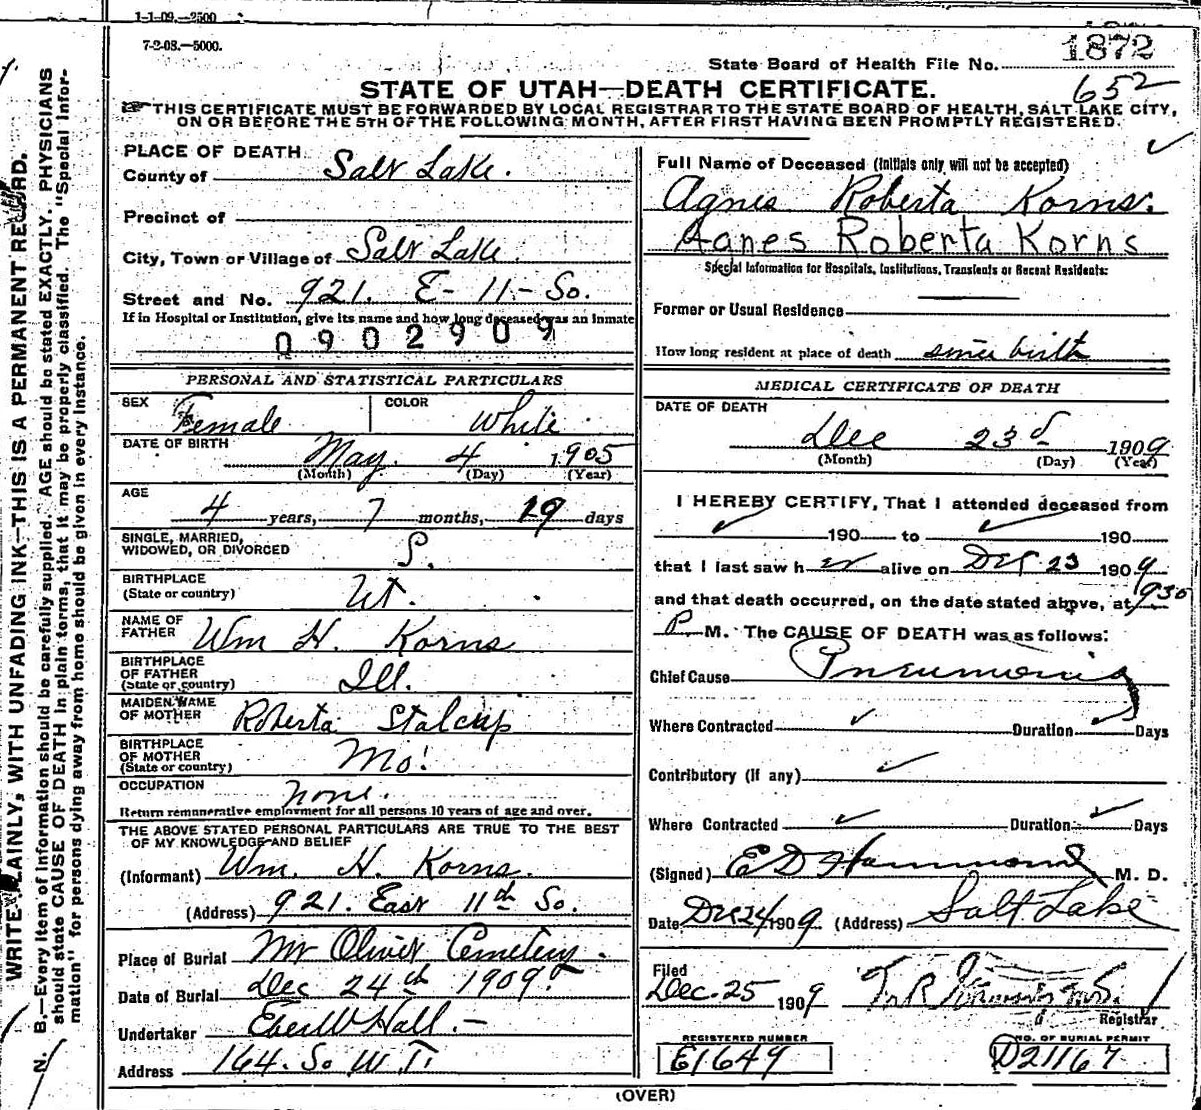 1-1-09.—2500
7-2-08.—5000.
1872
State Board of Health File No.
652
STATE OF UTAH—DEATH CERTIFICATE.
THIS CERTIFICATE MUST BE FORWARDED BY LOCAL REGISTRAR TO THE STATE BOARD OF HEALTH, SALT LAKE CITY,
ON OR BEFORE THE 5TH OF THE FOLLOWING MONTH, AFTER FIRST HAVING BEEN PROMPTLY REGISTERED.
PLACE OF DEATH
County of Salt Lake.
Precinct of
City, Town or Village of Salt Lake.
Street and No. 921. E- 11- So.
If in Hospital or Institution, give its name and how long deceased was an inmate
0902909
PERSONAL AND STATISTICAL PARTICULARS
SEX Female COLOR White
DATE OF BIRTH May. 4 1905
(Month) (Day) (Year)
AGE
4 years, 7 months, 19 days
SINGLE, MARRIED,
WIDOWED, OR DIVORCED S.
BIRTHPLACE
(State or country) Ut.
NAME OF
FATHER Wm H. Korns
BIRTHPLACE
OF FATHER
(State or country) Ill.
MAIDEN NAME
OF MOTHER Roberta Stalcup
BIRTHPLACE
OF MOTHER
(State or country) Mo.
OCCUPATION none.
Return remunerative employment for all persons 10 years of age and over.
THE ABOVE STATED PERSONAL PARTICULARS ARE TRUE TO THE BEST
OF MY KNOWLEDGE AND BELIEF
(Informant) Wm. H. Korns.
(Address) 921. East 11th So.
Place of Burial Mt Olivet Cemetery.
Date of Burial Dec 24th 1909.
Undertaker Eber W Hall.
Address 164. So W T.
Full Name of Deceased (Initials only will not be accepted)
Agnes Roberta Korns.
Agnes Roberta Korns
Special Information for Hospitals, Institutions, Transients or Recent Residents:
Former or Usual Residence
How long resident at place of death since birth
MEDICAL CERTIFICATE OF DEATH
DATE OF DEATH
Dec 23d 1909
(Month) (Day) (Year)
I HEREBY CERTIFY, That I attended deceased from
190 to 190
that I last saw h er alive on Dec 23 1909
and that death occurred, on the date stated above, at 930
P M. The CAUSE OF DEATH was as follows:
Chief Cause Pneumonia
Where Contracted Duration Days
Contributory (if any)
Where Contracted Duration Days
(Signed) E D Hammond M. D.
Date Dec 24 1909 (Address) Salt Lake
Filed
Dec. 25 1909
Registrar
REGISTERED NUMBER
E1649
NO. OF BURIAL PERMIT
D21167
(OVER)
WRITE PLAINLY, WITH UNFADING INK—THIS IS A PERMANENT RECORD.
N. B.—Every item of information should be carefully supplied. AGE should be stated EXACTLY. PHYSICIANS
should state CAUSE OF DEATH in plain terms, that it may be properly classified. The "Special Infor-
mation" for persons dying away from home should be given in every instance.